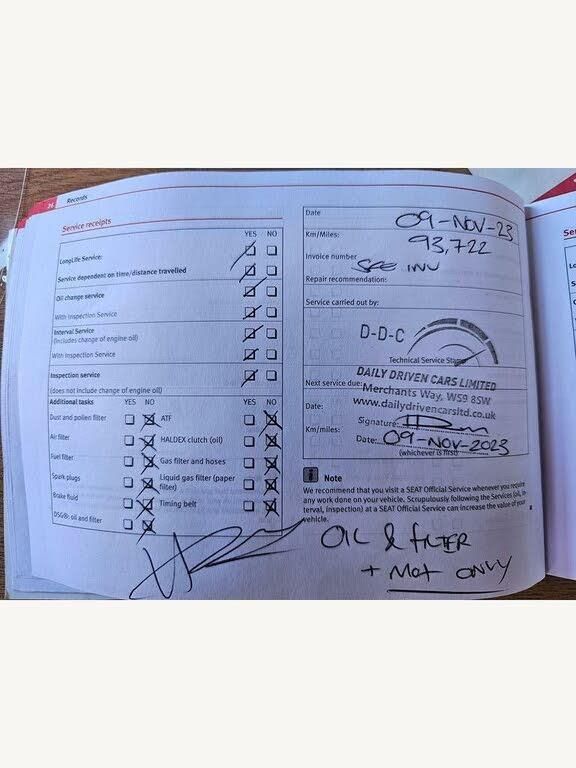 26 Records
Service receipts
YES NO
LongLife Service:
Service dependent on time/distance travelled
Oil change service
With Inspection Service
Interval Service
(includes change of engine oil)
With Inspection Service
Inspection service
(does not include change of engine oil)
Additional tasks YES NO YES NO
Dust and pollen filter ATF
Air filter HALDEX clutch (oil)
Fuel filter Gas filter and hoses
Spark plugs Liquid gas filter (paper filter)
Brake fluid Timing belt
DSG®: oil and filter
Date 09-NOV-23
Km/Miles: 93,722
Invoice number SEE INV
Repair recommendation:
Service carried out by:
D-D-C
Technical Service Stamp
DAILY DRIVEN CARS LIMITED
Next service due: Merchants Way, WS9 8SW
www.dailydrivencarsltd.co.uk
Date:
Signature:
Km/miles:
Date: 09-NOV-2023
(whichever is first)
Note
We recommend that you visit a SEAT Official Service whenever you require
any work done on your vehicle. Scrupulously following the Services (oil, in-
terval, inspection) at a SEAT Official Service can increase the value of your
vehicle.
OIL & FILTER
+ MOT ONLY